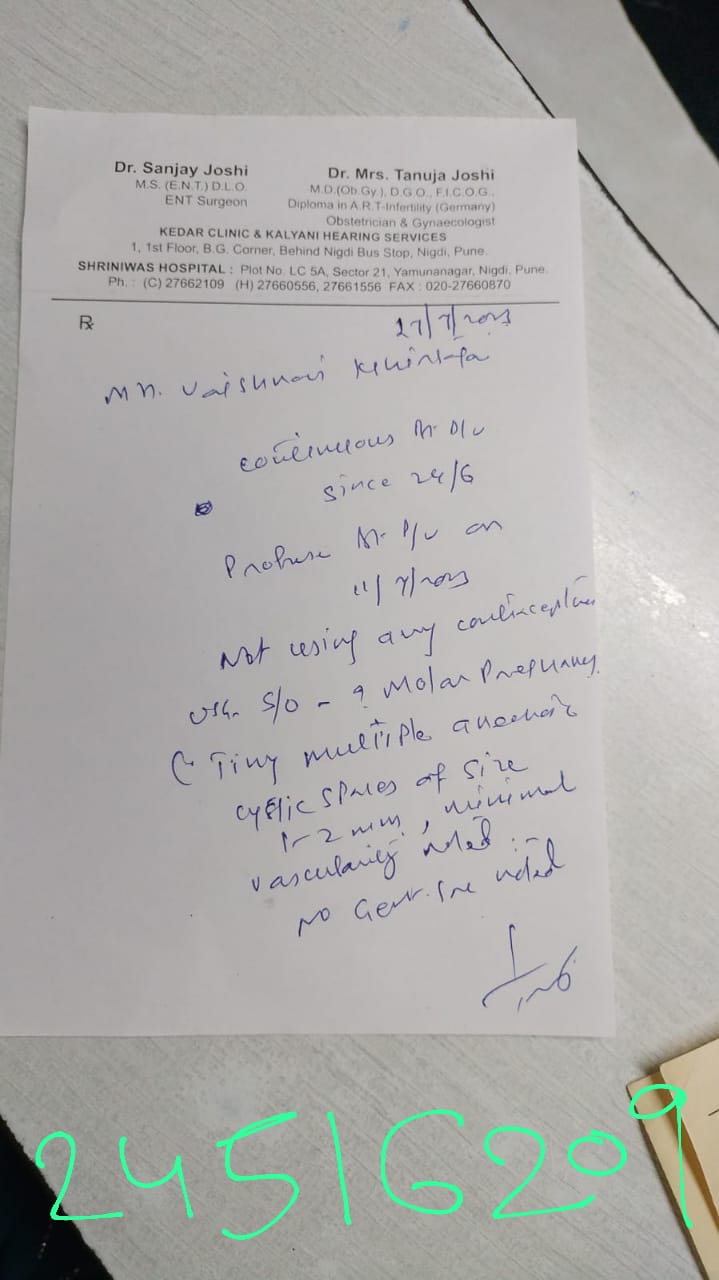 Dr. Sanjay Joshi
M.S. (E.N.T.) D.L.O.
ENT Surgeon
Dr. Mrs. Tanuja Joshi
M.D.(Ob.Gy.), D.G.O., F.I.C.O.G.,
Diploma in A.R.T-Infertility (Germany)
Obstetrician & Gynaecologist
KEDAR CLINIC & KALYANI HEARING SERVICES
1, 1st Floor, B.G. Corner, Behind Nigdi Bus Stop, Nigdi, Pune.
SHRINIWAS HOSPITAL : Plot No. LC 5A, Sector 21, Yamunanagar, Nigdi, Pune.
Ph. : (C) 27662109 (H) 27660556, 27661556 FAX : 020-27660870
℞
Vaishnavi
continuous
since 24/6
Profuse P/V on
Not using any contraception
S/O - ? Molar Pregnancy
Tiny multiple anechoic
cystic spaces of size
1-2 mm, minimal
vascularity noted
No noted
24516209